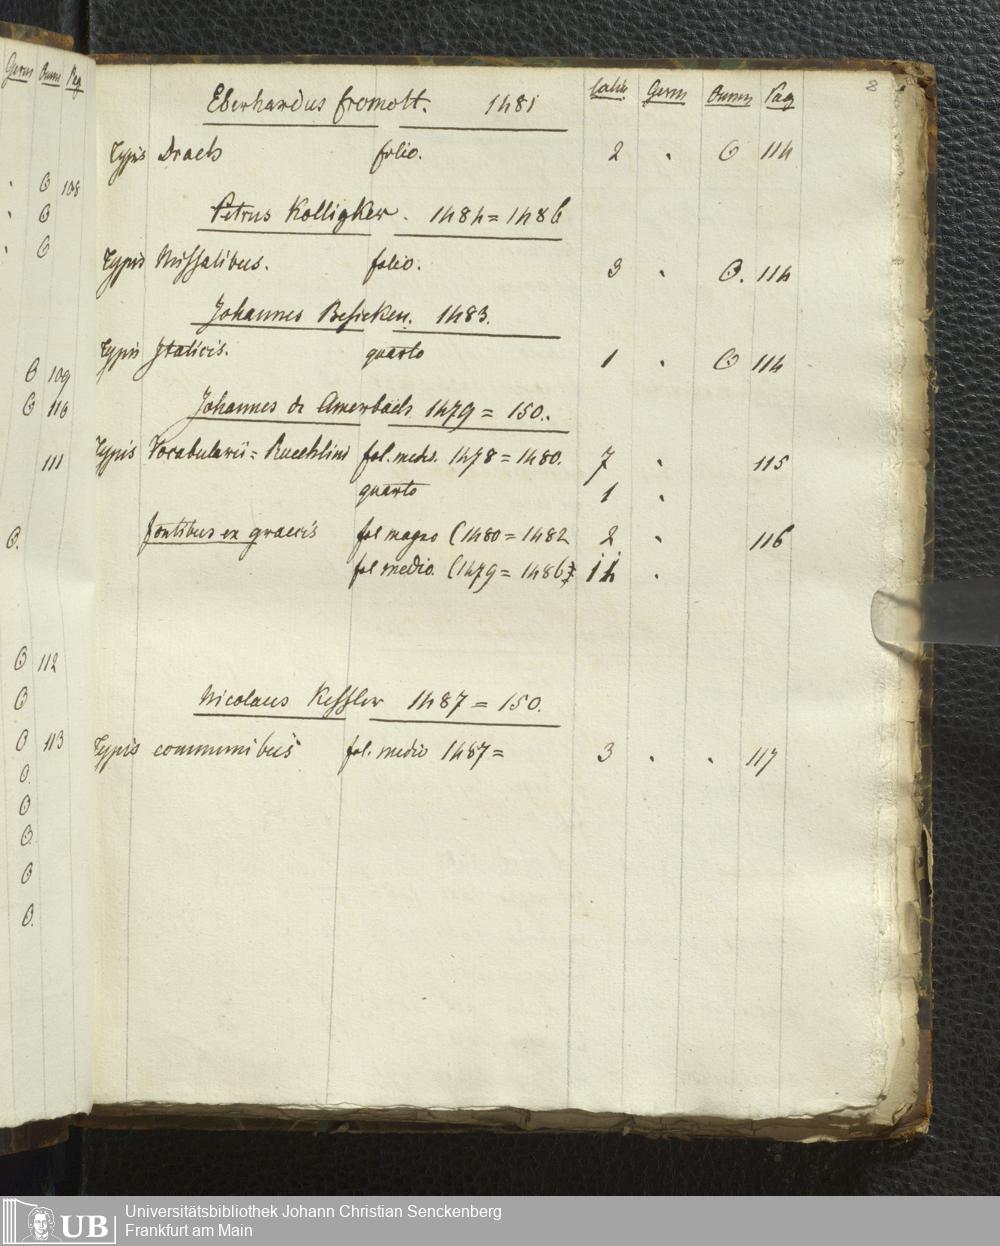 Germ Omn Pag
O 108
O
O
O 109
O 110
111
O.
O 112
O
O 113
O.
O
O.
O
O.
8
Eberhardus fromolt. 1481 Latin Germ Omn Pag
Typis Drach folio. 2 . O 114
Petrus Kolligker. 1484 = 1486
Typis Missalibus. folio. 3 . O. 114
Johannes Besicken. 1483.
Typis Italicis. quarto 1 . O 114
Johannes de Amerbach 1479 = 150.
Typis Vocabularii = Reuchlini fol. med. 1478 = 1480. 7 . 115
quarto 1 .
fontibus ex graecis fol magno (1480 = 1482 2 . 116
fol medio. (1479 = 1486 14 .
Nicolaus Kessler 1487 = 150.
Typis communibus fol. medio 1487 = 3 . . 117
UB Universitätsbibliothek Johann Christian Senckenberg
Frankfurt am Main